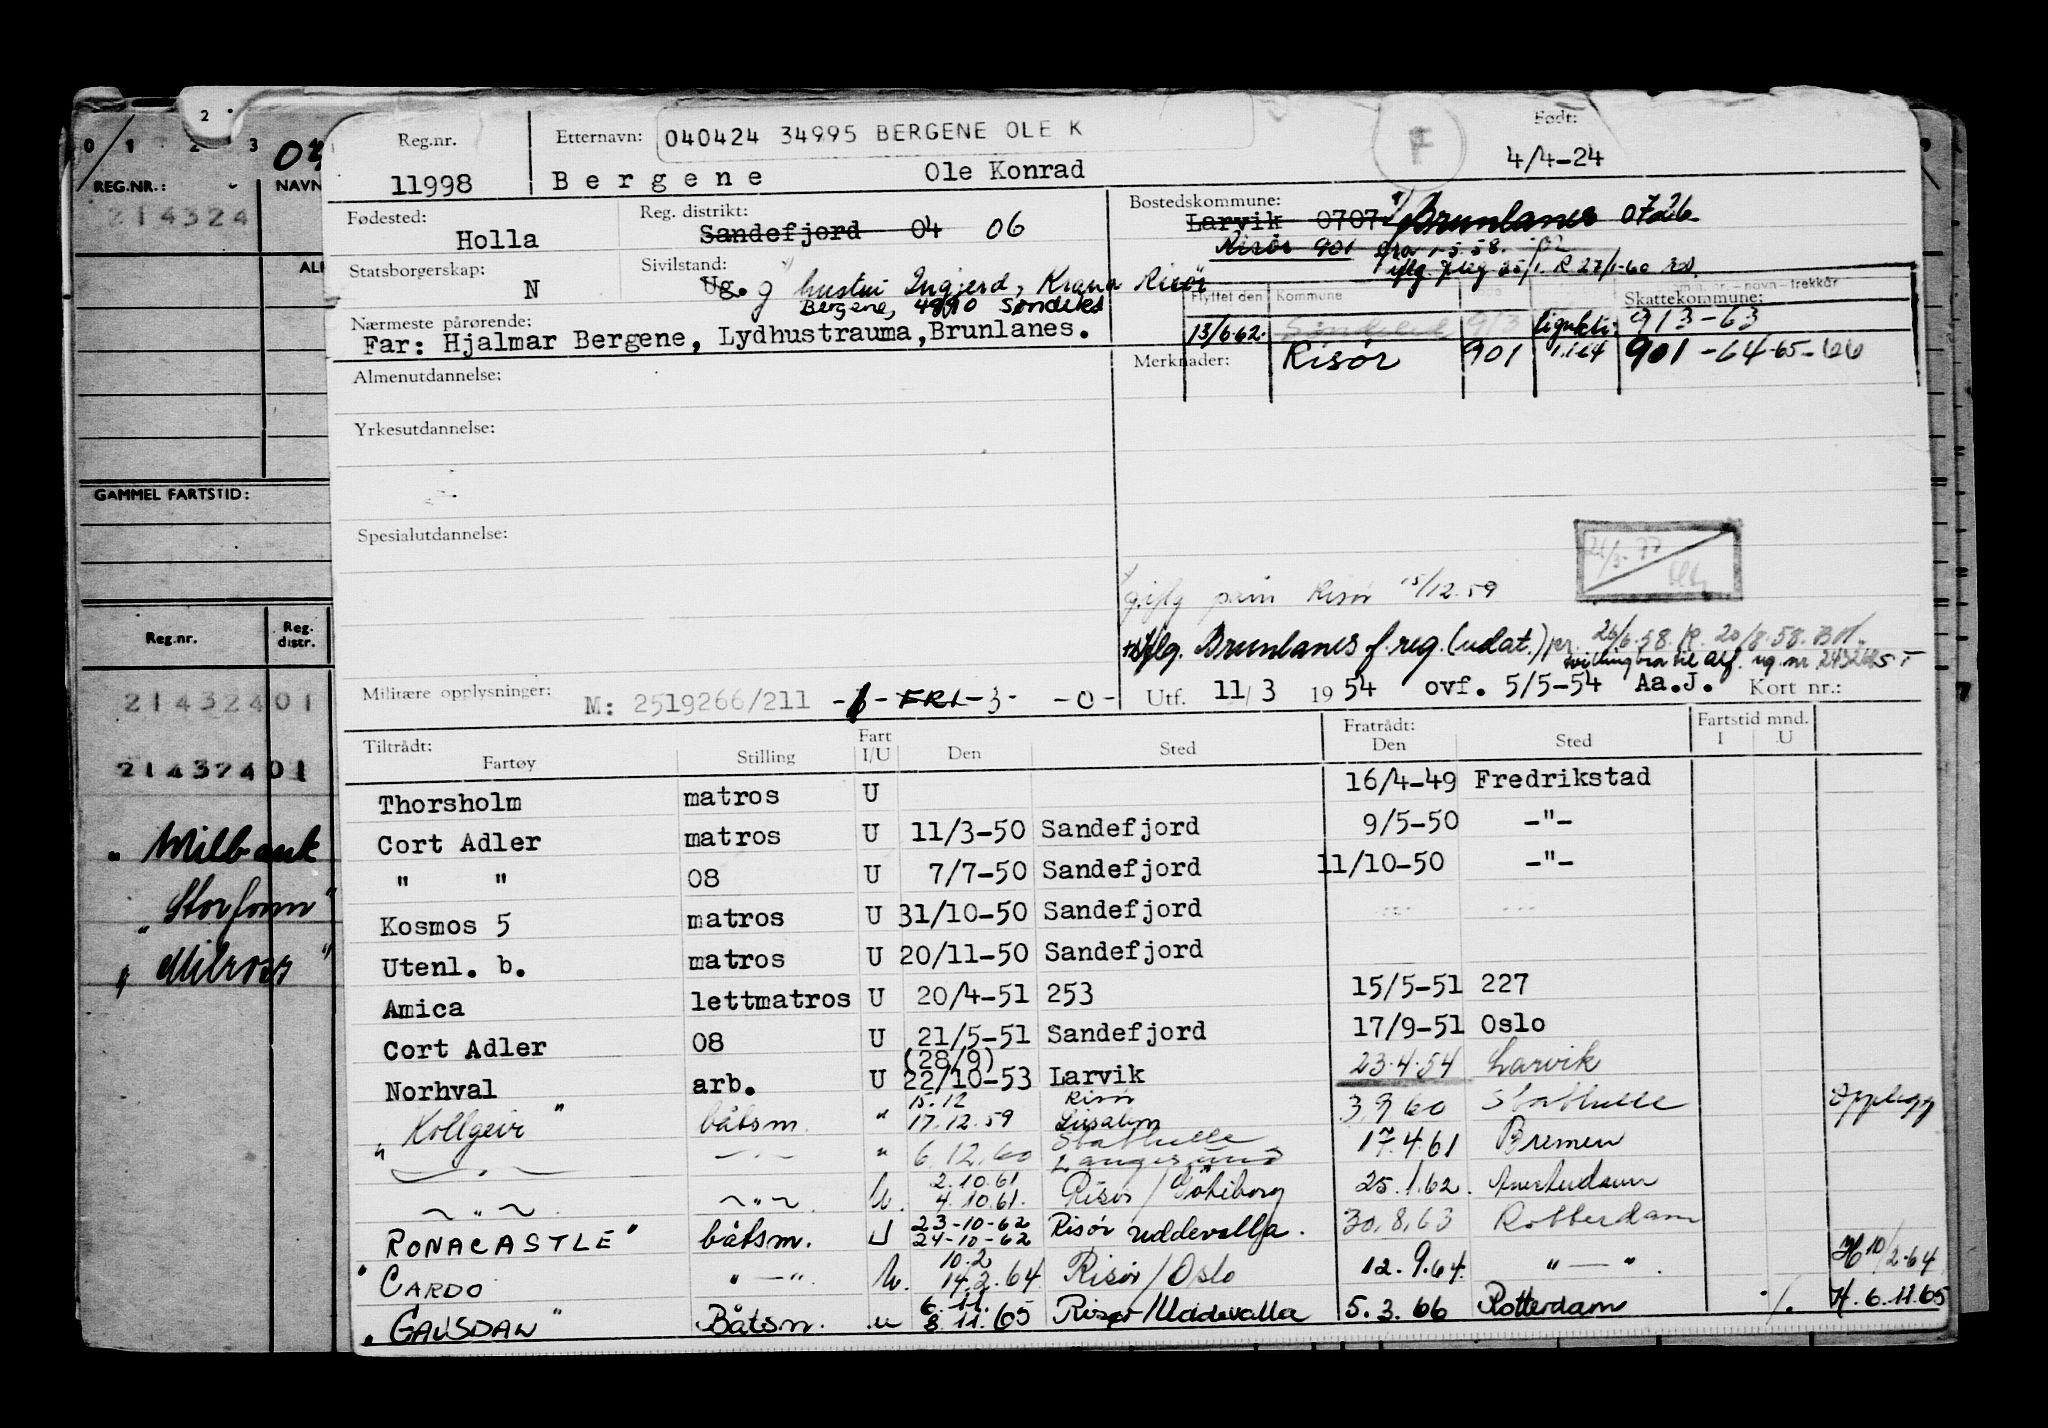 2
0 1 2 3
REG.NR.:
NAVN
214324
GAMMEL FARTSTID:
Reg.nr.
Reg. distr.
21432401
21432401
" Milbank
" Storfonn "
" Milross "
Reg.nr. Etternavn: 040424 34995 BERGENE OLE K F Født:
11998 Bergene Ole Konrad 4/4-24
Fødested: Reg. distrikt: Bostedskommune:
Holla Sandefjord 04 06 Larvik 0707 Brunlanes 0726
Risör 901 fra 1-5.58.
Statsborgerskap: Sivilstand:
N Ug. g hustru Ingjerd, Krana Risör
Bergene, 4990 Söndeled
Flyttet den Kommune Skattekommune:
Nærmeste pårørende:
13/6.62. Söndeled 913 913-63
Far: Hjalmar Bergene, Lydhustrauma, Brunlanes.
Merknader: Risör 901 1.1.64 901-64-65-66
Almenutdannelse:
Yrkesutdannelse:
Spesialutdannelse:
g. iflg prim Risör 15/12.59
Iflg. Brunlanes f.reg. (udat.) pr. 26/6.58. R. 20/8.58.
Militære opplysninger: M: 2519266/211 -FRI-3- -0- Utf. 11/3 1954 ovf. 5/5-54 Aa.J. Kort nr.:
Tiltrådt: Fart Fratrådt: Fartstid mnd.
Fartøy Stilling I/U Den Sted Den Sted I U
Thorsholm matros U 16/4-49 Fredrikstad
Cort Adler matros U 11/3-50 Sandefjord 9/5-50 -"-
" " 08 U 7/7-50 Sandefjord 11/10-50 -"-
Kosmos 5 matros U 31/10-50 Sandefjord
Utenl. b. matros U 20/11-50 Sandefjord
Amica lettmatros U 20/4-51 253 15/5-51 227
Cort Adler 08 U 21/5-51 Sandefjord 17/9-51 Oslo
(28/9)
Norhval arb. U 22/10-53 Larvik 23.4.54 Larvik
15.12 Risör
" Kollgeir " båtsm. " 17.12.59 3.9.60 Stathelle Opplegg
Stathelle
— " — — " — " 6.12.60 Langesund 17.4.61 Bremen
2.10.61
~ " ~ ~ " ~ U. 4.10.61. Risör / Göteborg 25.1.62. Amsterdam
23-10-62
RONACASTLE " båtsm. U 24-10-62 Risör Uddevalla. 30.8.63 Rotterdam
10.2
" CARDO " — " U. 14.2.64 Risör / Oslo 12.9.64. " — " H 10/2-64
6.11.
" GAUSDAL " Båtsm. u 8.11.65 Risør / Uddevalla 5.3.66 Rotterdam H. 6.11.65